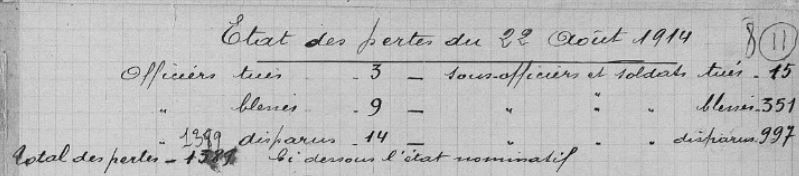 Etat des pertes du 22 Août 1914 8 11
Officiers tués - 3 - sous-officiers et soldats tués - 15
" blessés - 9 - " " " blessés - 351
" disparus - 14 - " " " disparus 997
1389
Total des pertes - 1389 Ci dessous l'état nominatif